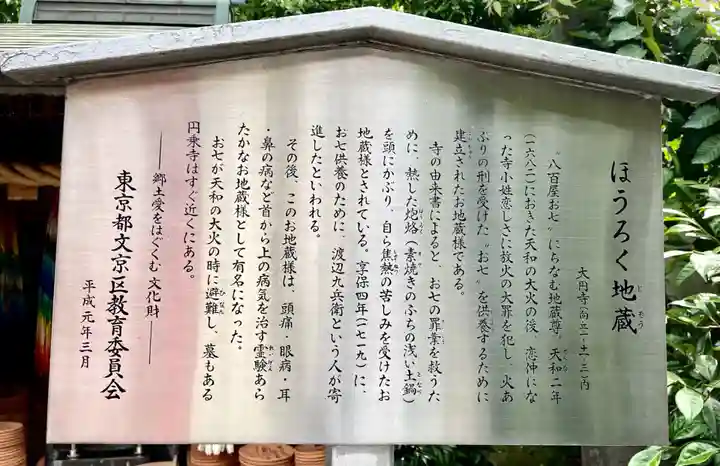 ほうろく地蔵
大円寺(向丘一-一一-三)内
“八百屋お七”にちなむ地蔵尊。天和二年
(一六八二)におきた天和の大火の後、恋仲にな
った寺小姓恋しさに放火の大罪を犯し、火あ
ぶりの刑を受けた“お七”を供養するために
建立されたお地蔵様である。
寺の由来書によると、お七の罪業を救うた
めに、熱した炮烙(素焼きのふちの浅い土鍋)
を頭にかぶり、自ら焦熱の苦しみを受けたお
地蔵様とされている。享保四年(一七一九)に、
お七供養のために、渡辺九兵衛という人が寄
進したといわれる。
その後、このお地蔵様は、頭痛・眼病・耳
・鼻の病など首から上の病気を治す霊験あら
たかなお地蔵様として有名になった。
お七が天和の大火の時に避難し、墓もある
円乗寺はすぐ近くにある。
―郷土愛をはぐくむ文化財―
東京都文京区教育委員会
平成元年三月